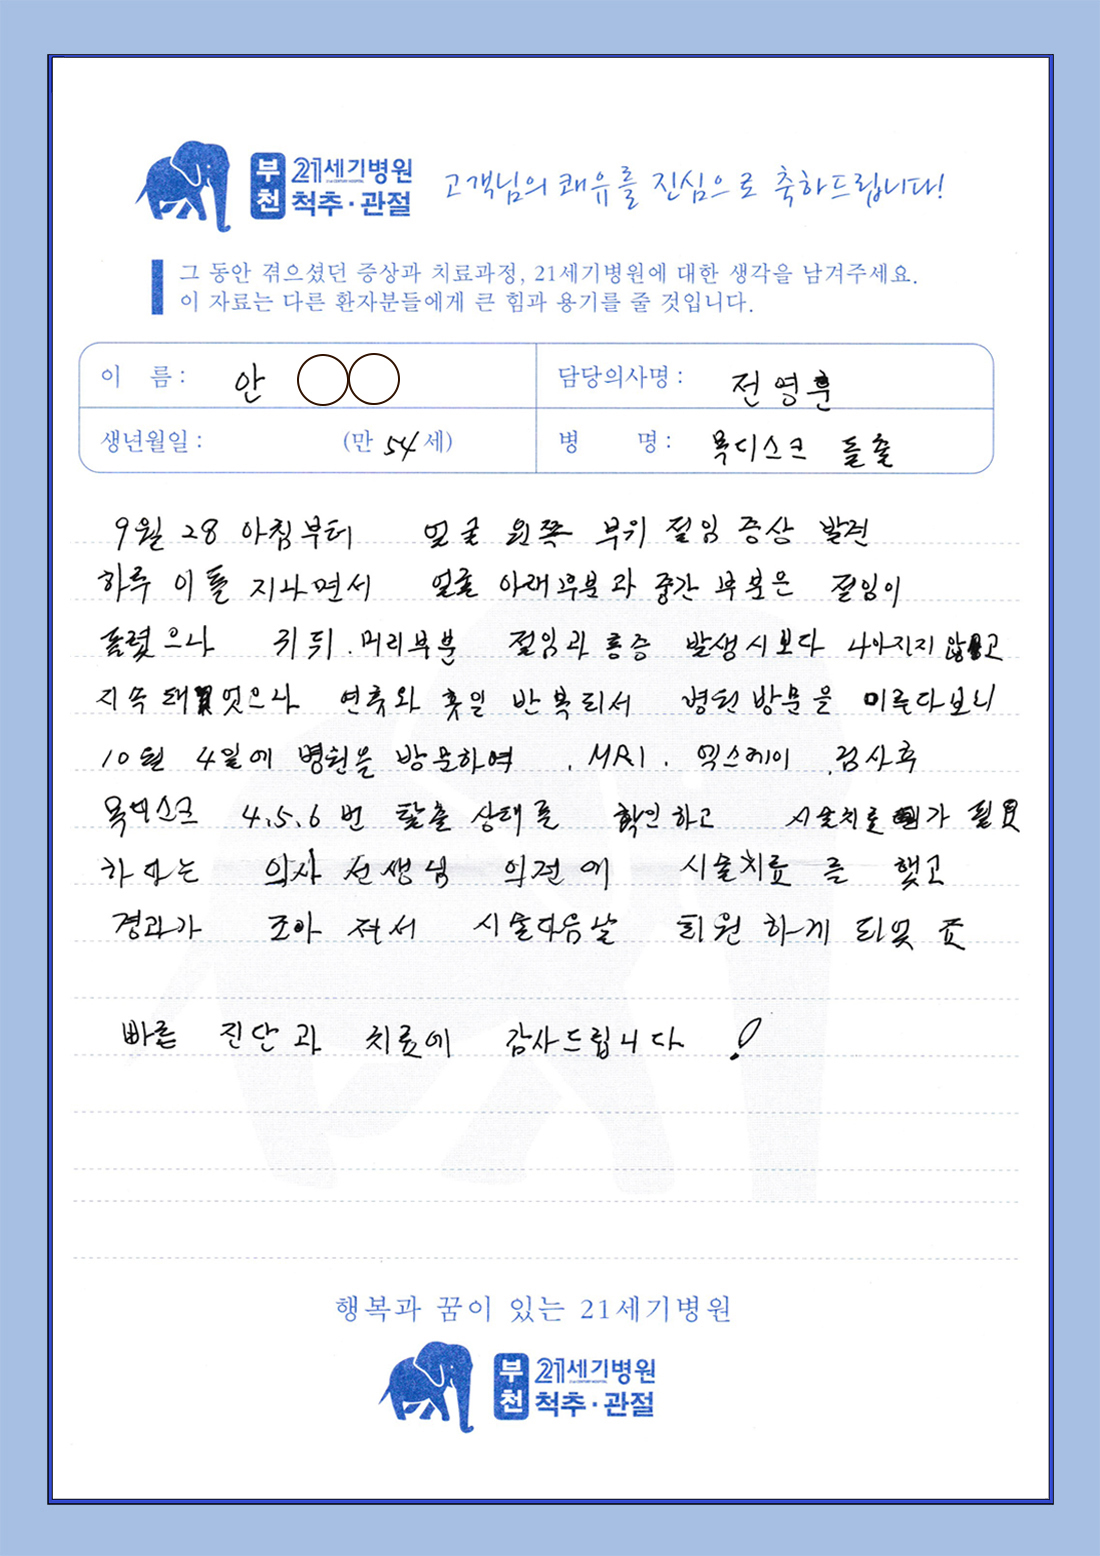 부천 21세기병원 척추·관절
고객님의 쾌유를 진심으로 축하드립니다!
그 동안 겪으셨던 증상과 치료과정, 21세기병원에 대한 생각을 남겨주세요.
이 자료는 다른 환자분들에게 큰 힘과 용기를 줄 것입니다.
이 름 : 안 ○○ 담당의사명 : 전영훈
생년월일 : (만 54 세) 병 명 : 목디스크 돌출
9월 28 아침부터 얼굴 왼쪽 부위 절임 증상 발견
하루 이틀 지나면서 얼굴 아래부분과 중간 부분은 절임이
풀렸으나 귀뒤.머리부분 절임과 통증 발생시보다 나아지지 않고
지속 돼었으나 연휴와 휴일 반복되서 병원방문을 미루다보니
10월 4일에 병원을 방문하여 . MRI . 엑스레이 .검사후
목디스크 4,5,6 번 탈출 상태를 확인하고 시술치료가 필요
하다는 의사 선생님 의견에 시술치료를 했고
경과가 조아 져서 시술다음날 퇴원 하게 되었죠
빠른 진단과 치료에 감사드립니다 !
행복과 꿈이 있는 21세기병원
부천 21세기병원 척추·관절